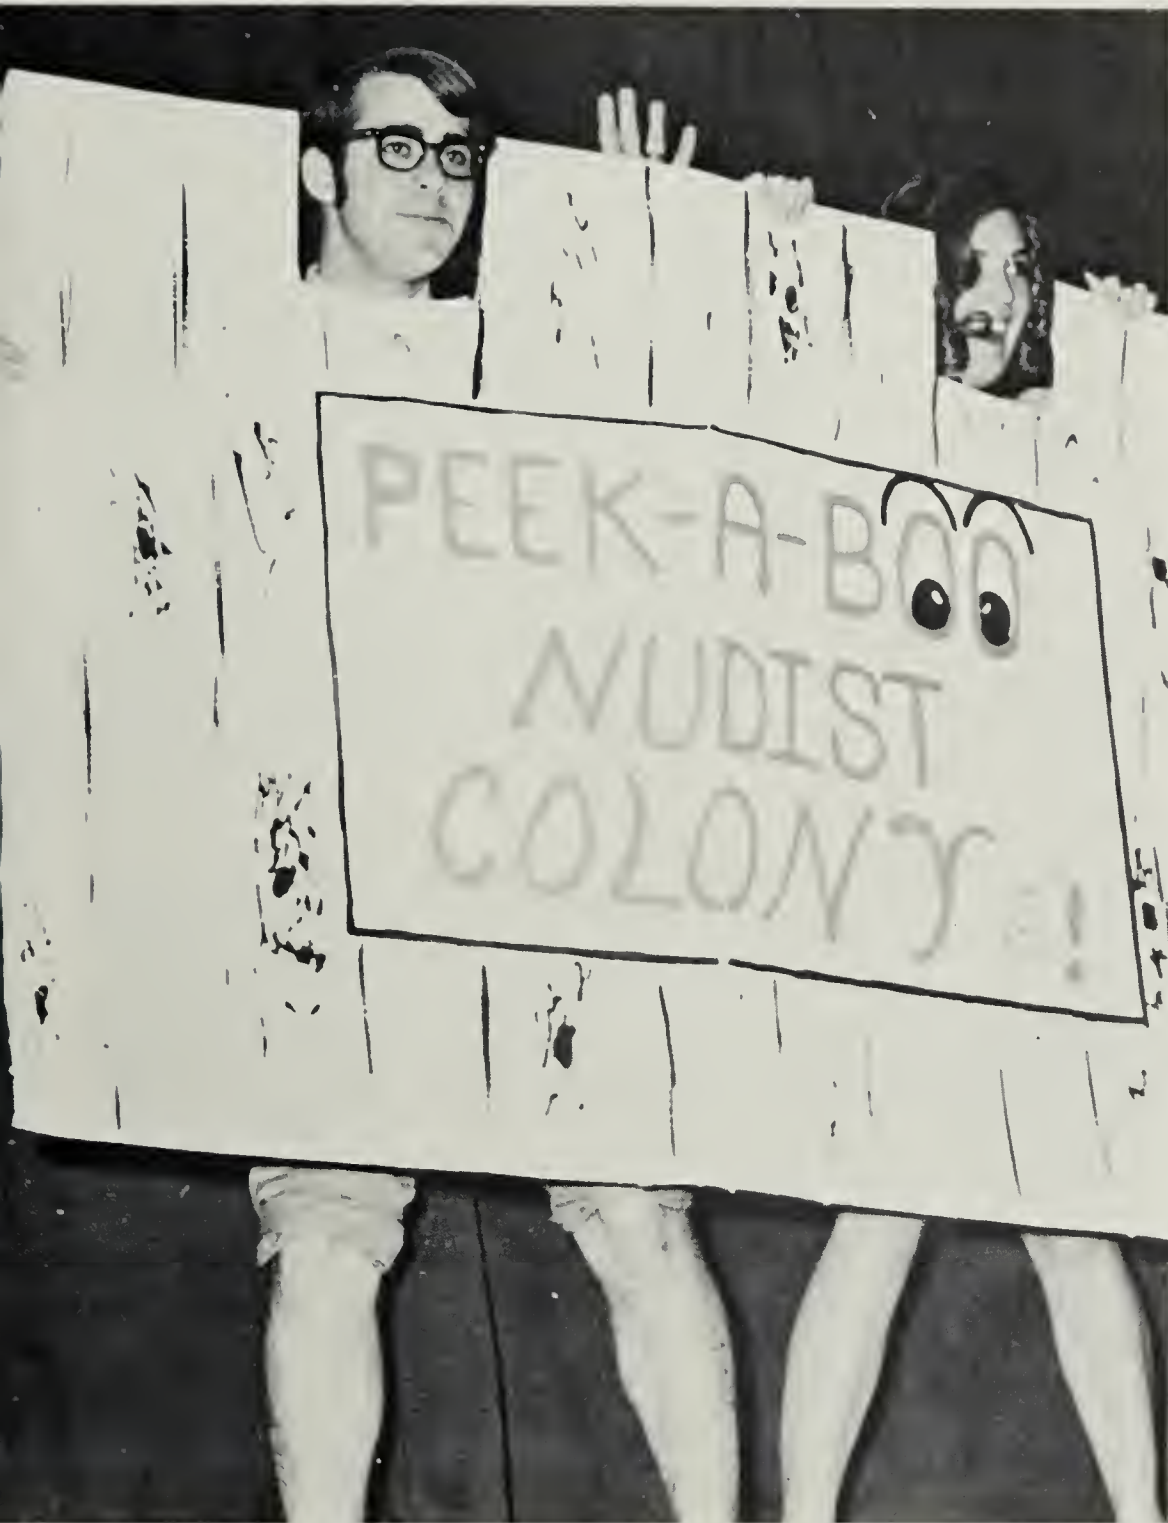 PEEK-A-BOO
NUDIST
COLONY!